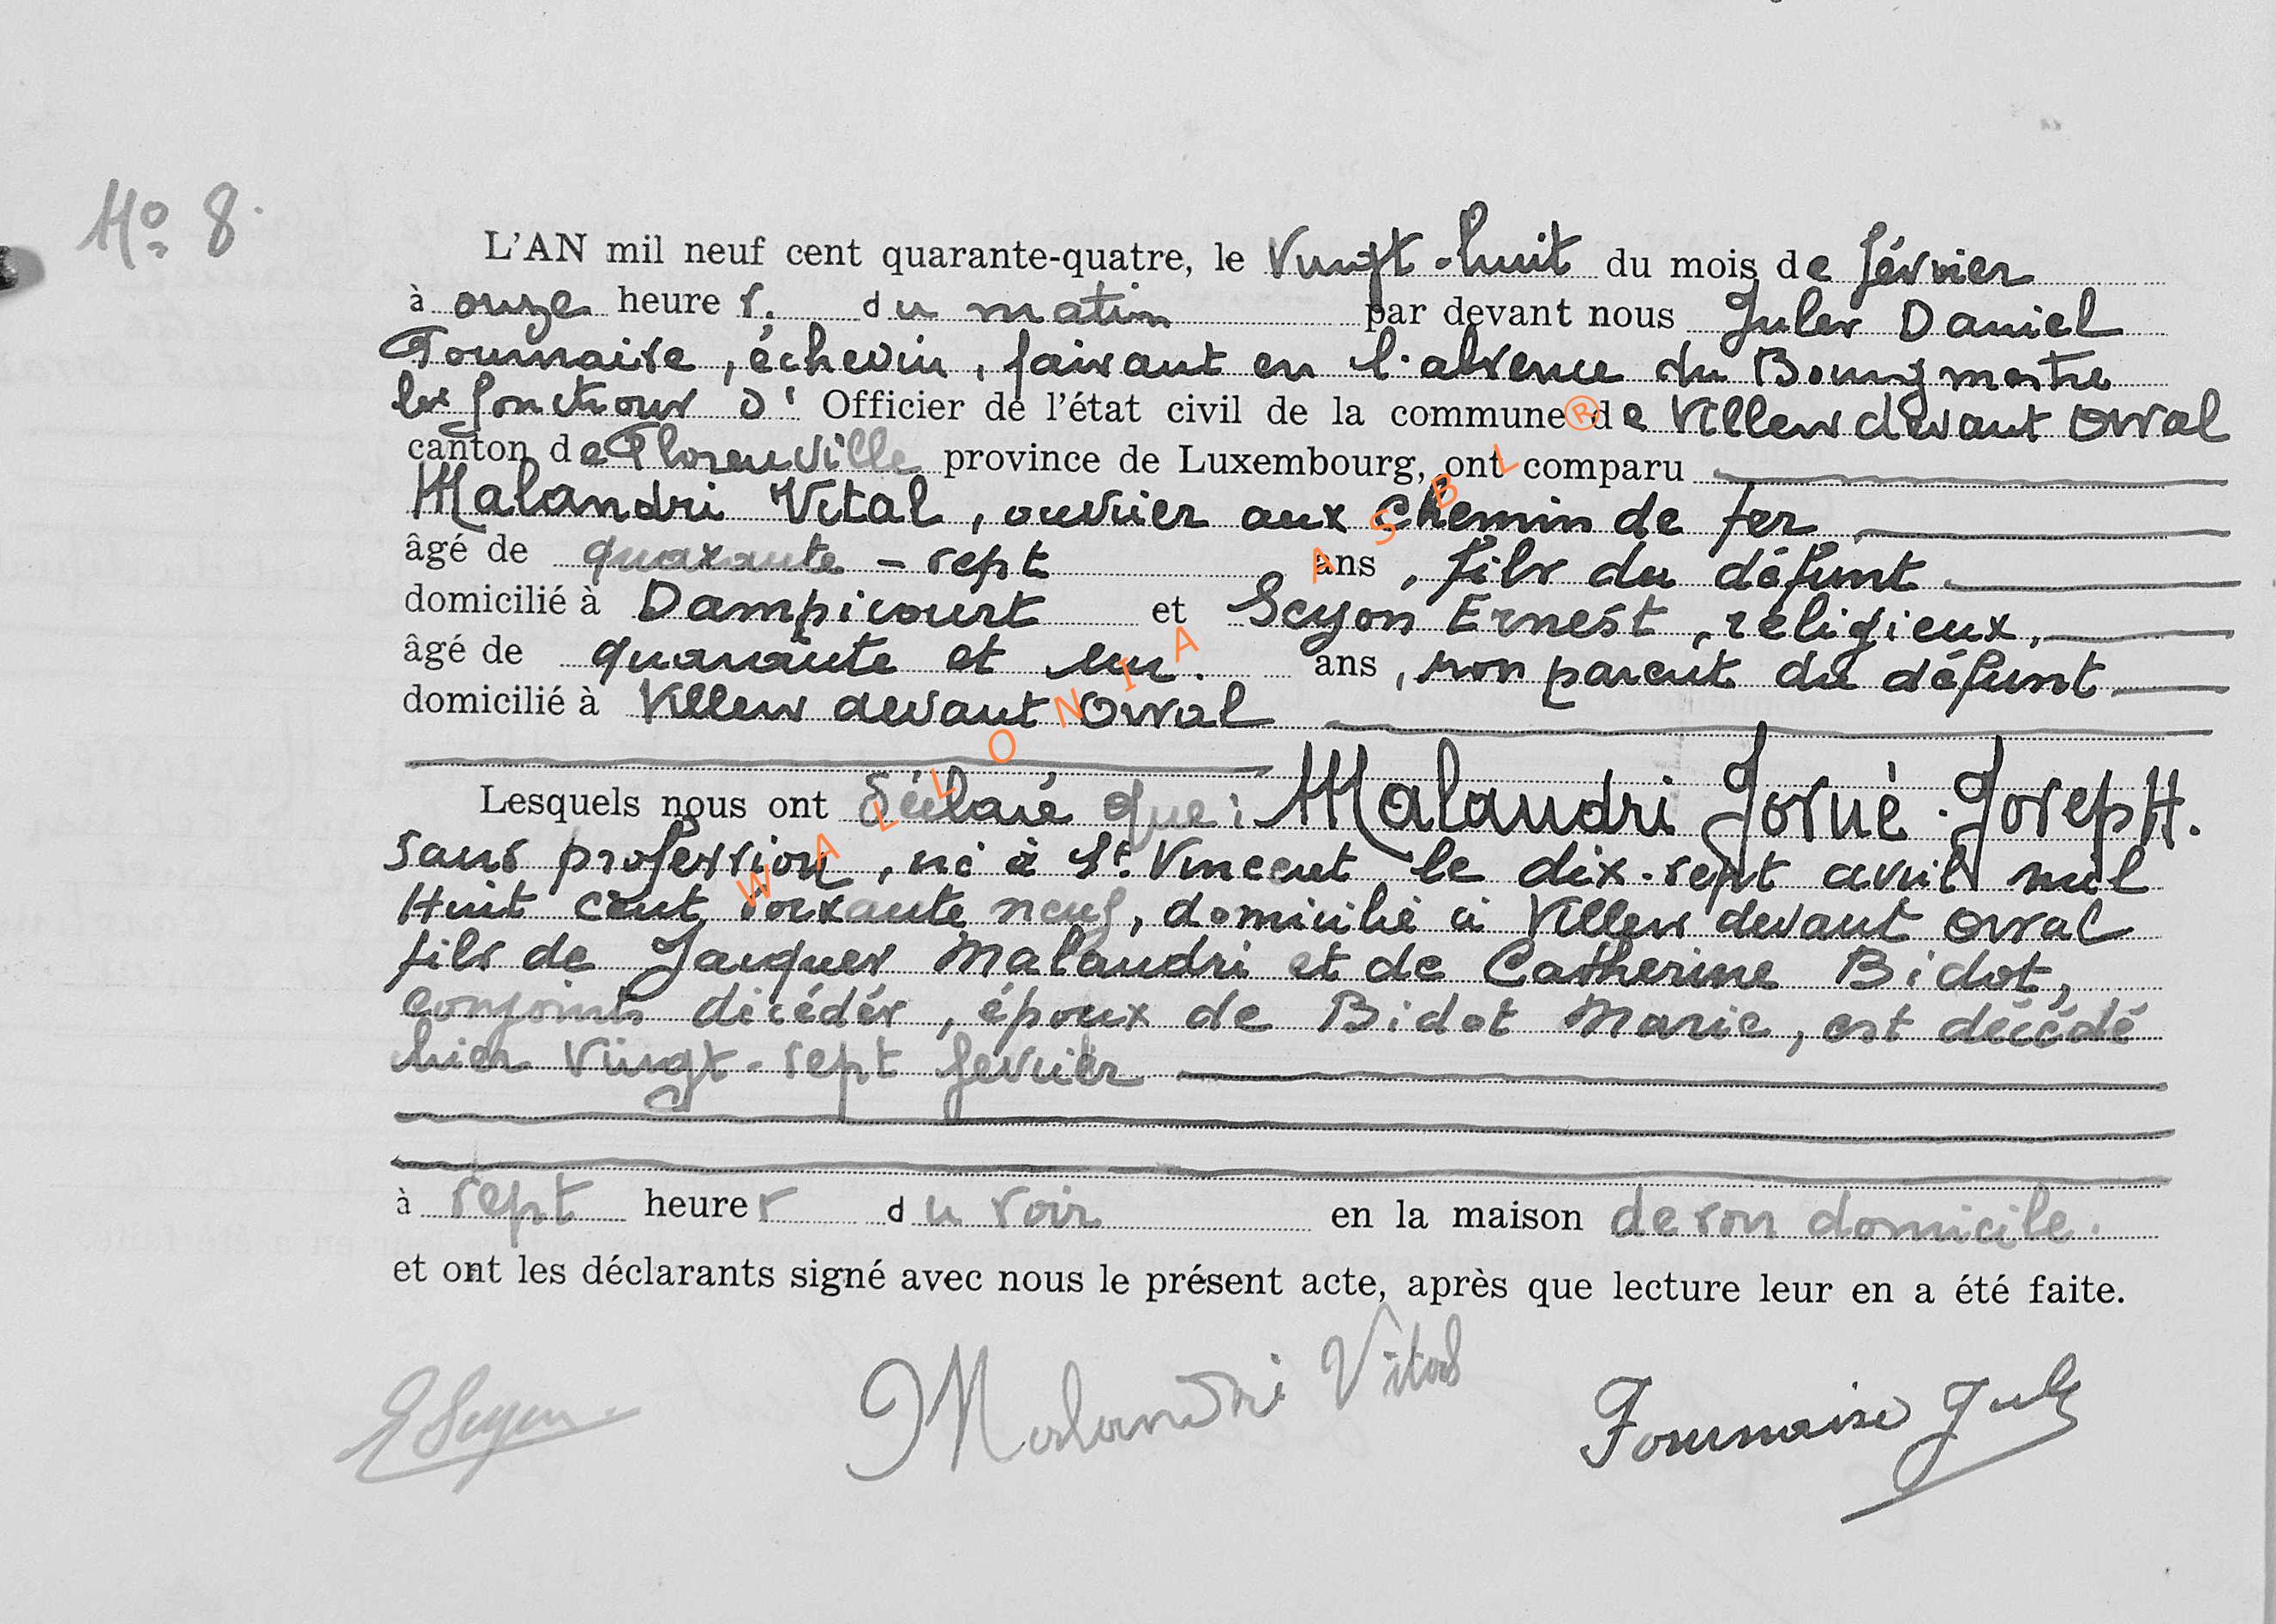 No 8.
L'AN mil neuf cent quarante-quatre, le vingt-huit du mois de février
à onze heures. du matin par devant nous Jules Daniel
Fournaise, échevin, faisant en l'absence du Bourgmestre
les fonctions d'Officier de l'état civil de la commune de Villers devant Orval
canton de Florenville province de Luxembourg, ont comparu
Malandri Vital, ouvrier aux chemin de fer
âgé de quarante-sept ans, fils du défunt
domicilié à Dampicourt et Scyon Ernest, religieux,
âgé de quarante et un. ans, non parent du défunt
domicilié à Villers devant Orval
Lesquels nous ont déclaré que: Malandri Josué-Joseph.
sans profession, né à St. Vincent le dix-sept avril mil
Huit cent soixante neuf, domicilié à Villers devant Orval
fils de Jacques Malandri et de Catherine Bidot,
conjoints décédés, époux de Bidot Marie, est décédé
hier vingt-sept fevrier
à sept heures du soir en la maison de son domicile.
et ont les déclarants signé avec nous le présent acte, après que lecture leur en a été faite.
E Scyon Malandri Vital Fournaise Jules
WALLONIA ASBL ®